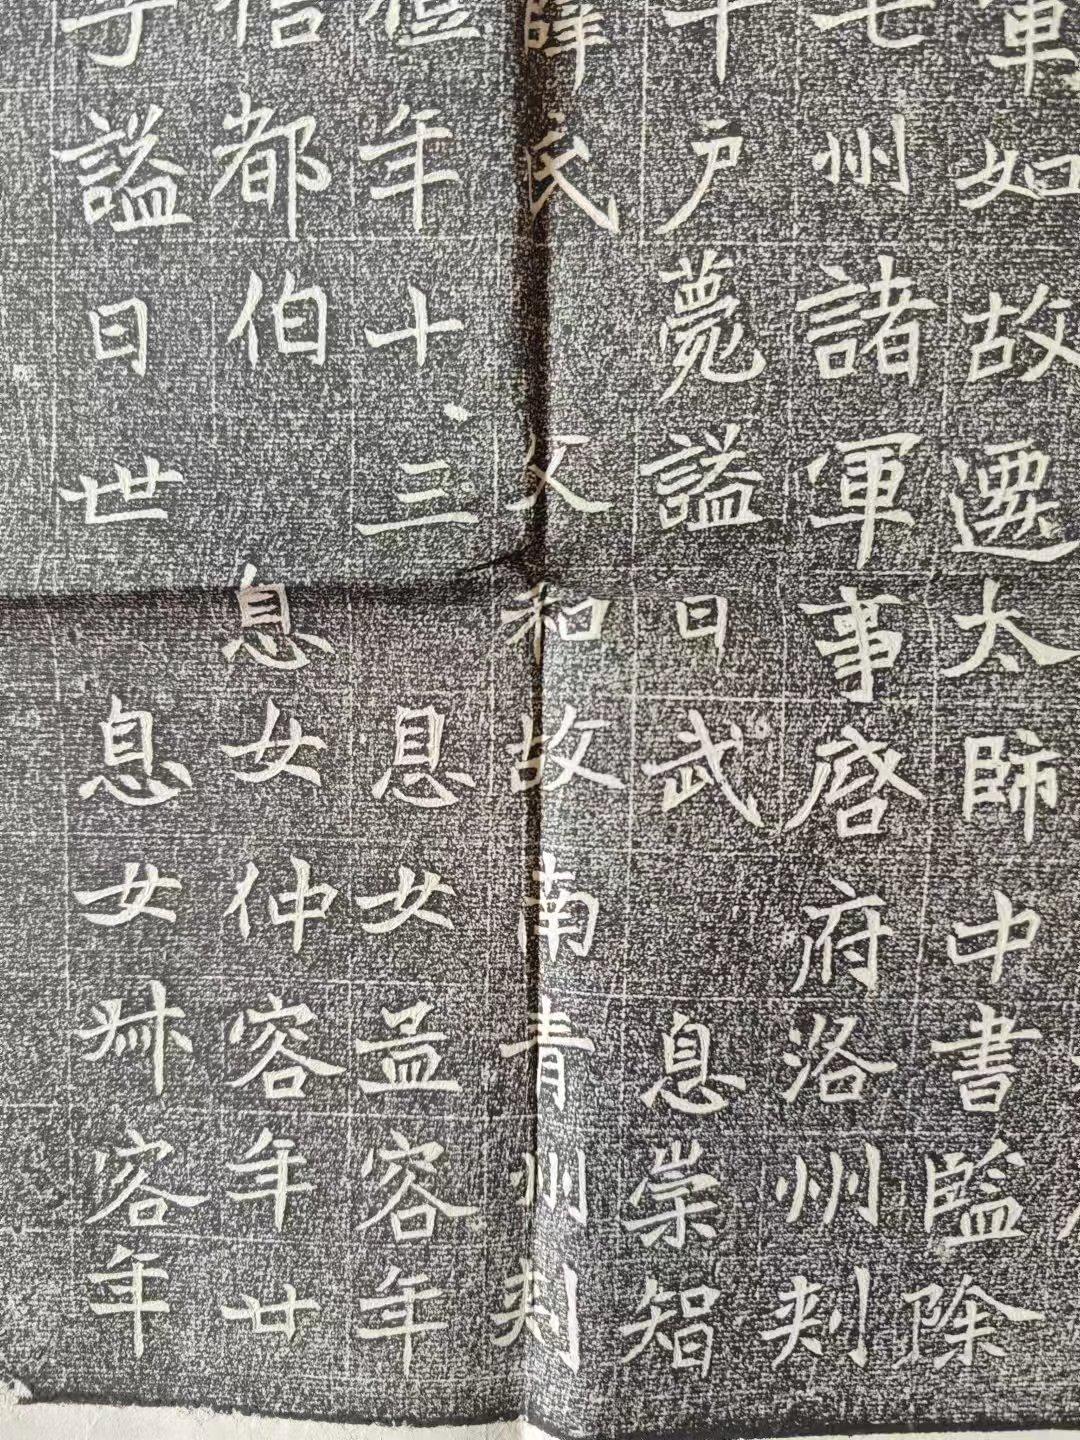 軍如故遷太師中書監除
七州諸軍事啓府洛州刾
千户薨謚曰武 息崇智
薛氏 父和故南青州刾
年十三 息女孟容年
都伯 息女仲容年廿
子謚曰世 息女㑣容年